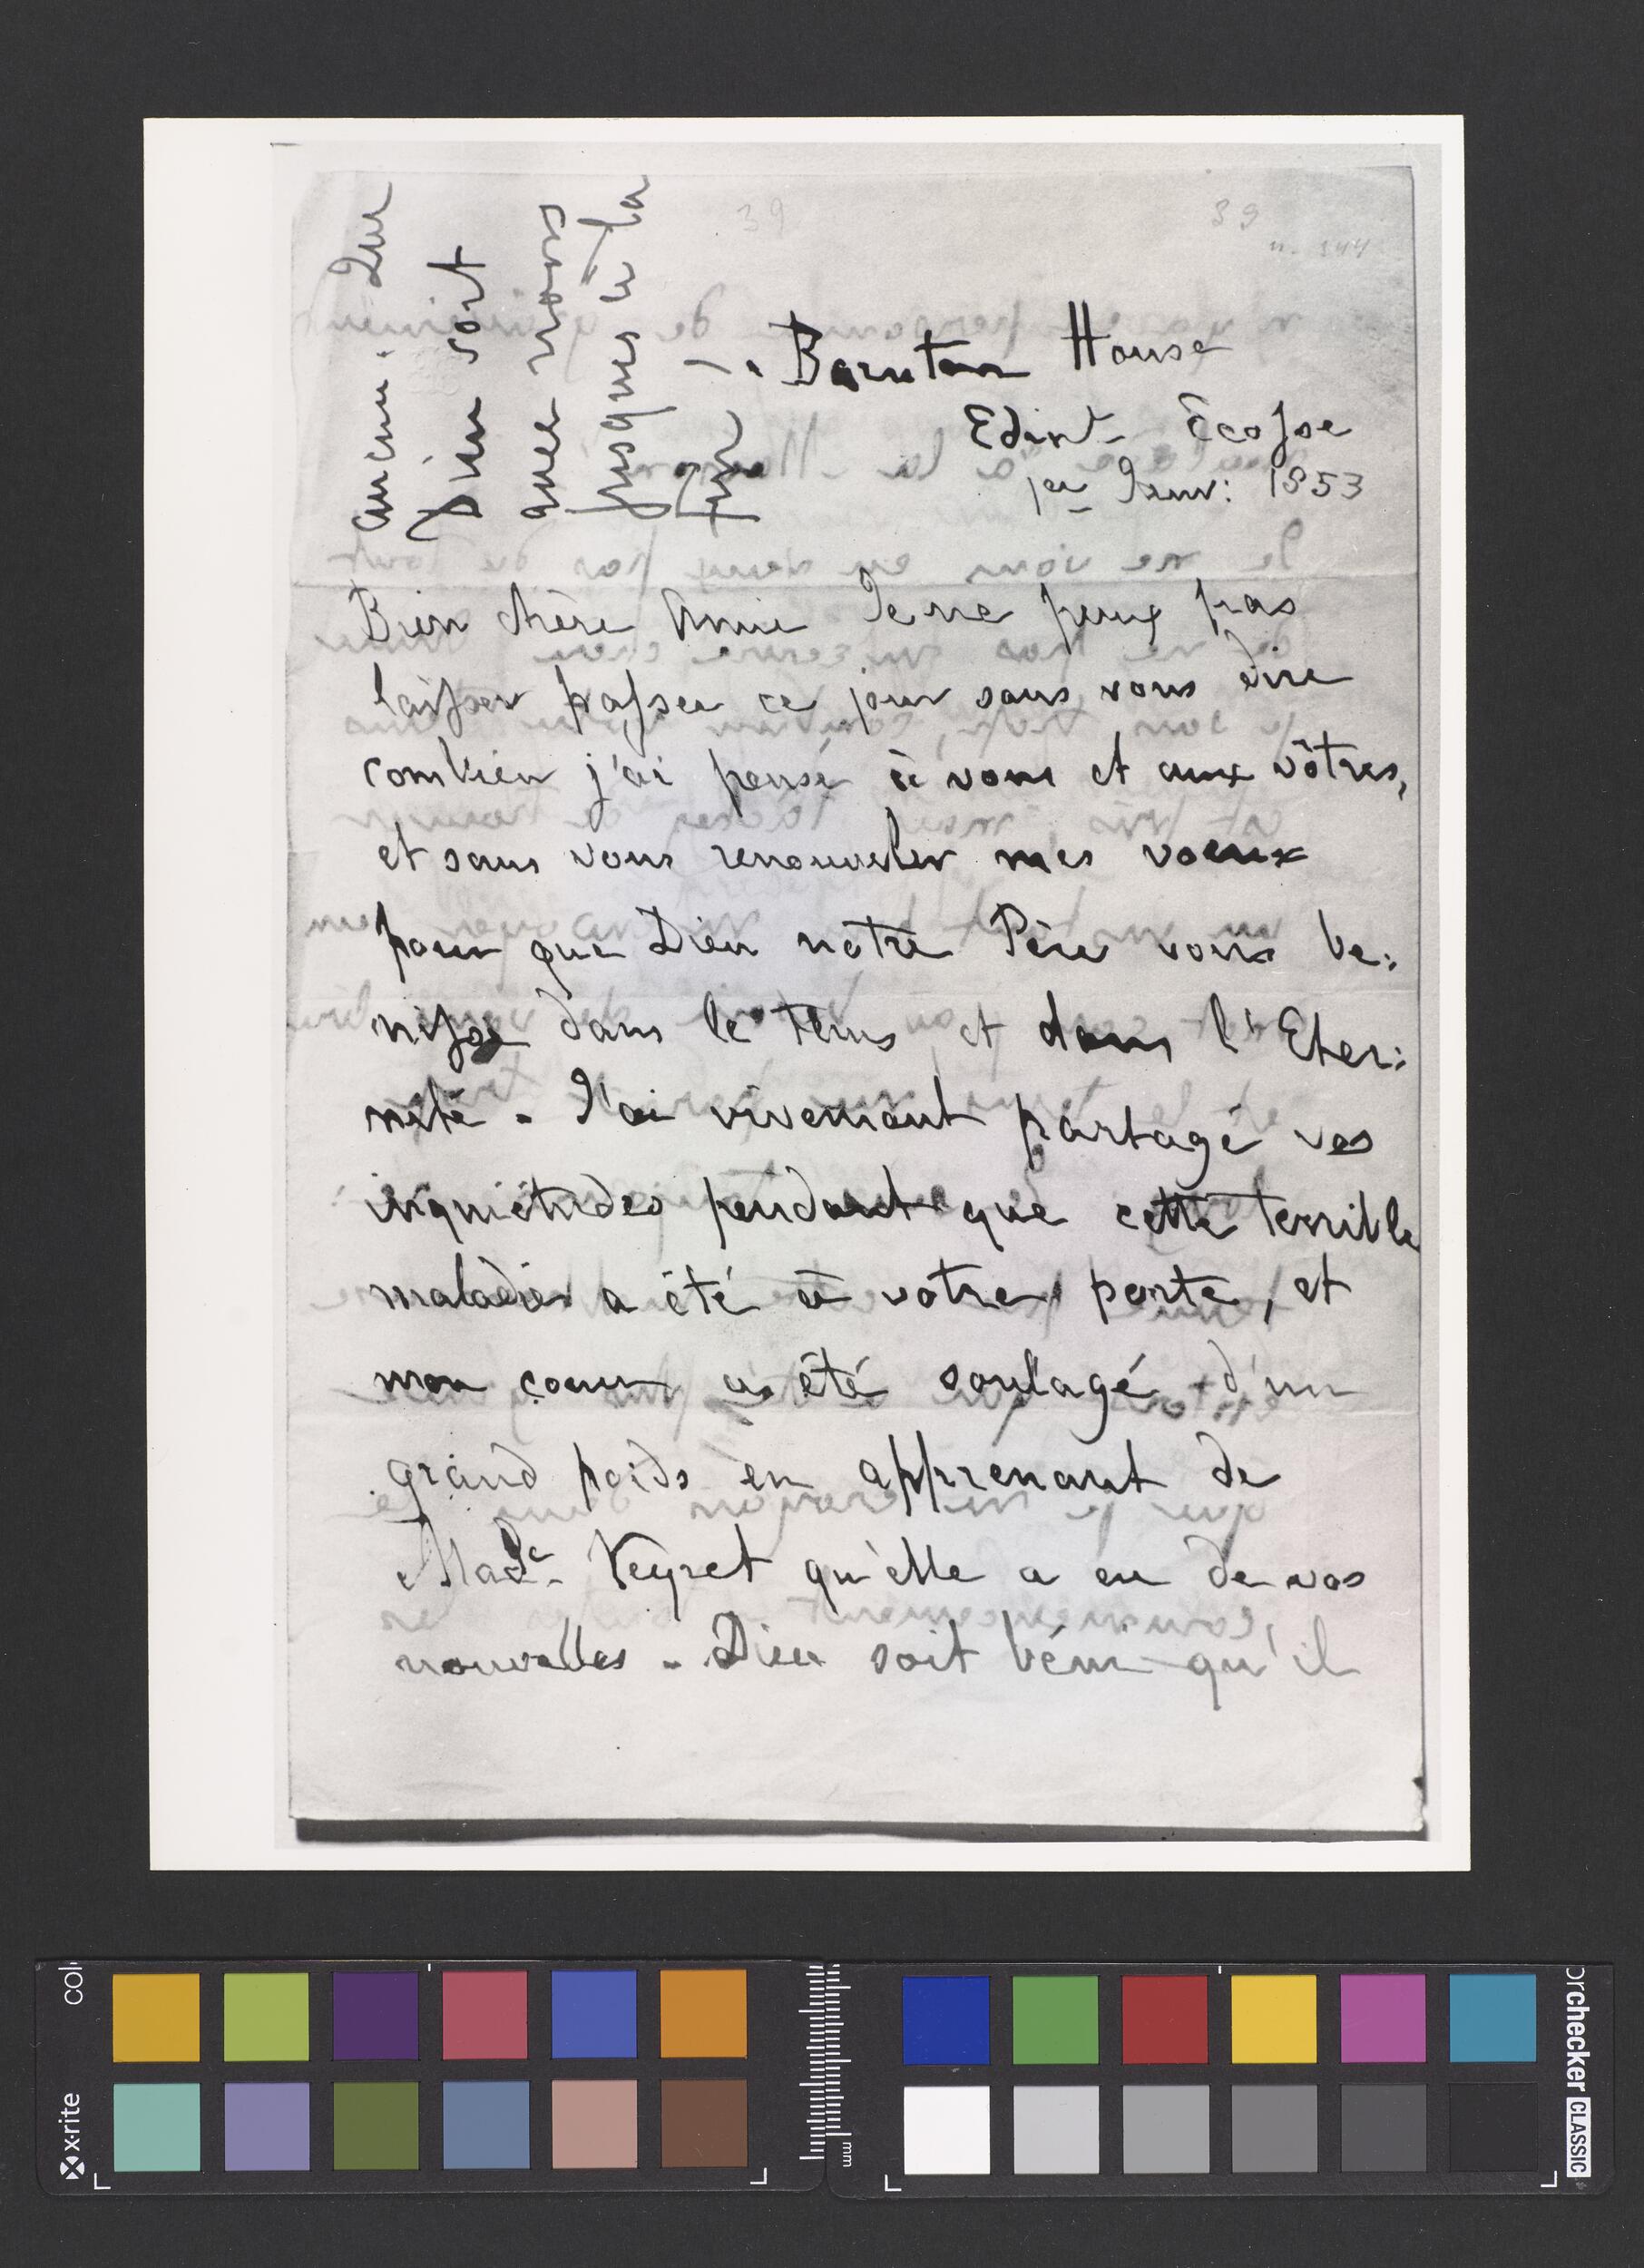 39
39
n. 344
ancun. Que
Dieu soit
avec vous
jusques à la
fin
Barnton House
Edinb. Ecosse
1er Janv: 1853
Bien chère Amie Je ne peux pas
laisser passer ce jour sans vous dire
combien j'ai pensé à vous et aux vôtres,
et sans vous renouveler mes voeux
pour que Dieu notre Père vous be:
nisse dans le tems et dans l'Eter:
nité - J'ai vivement partagé vos
inquiétudes pendant que cette terrible
maladie a été à votre porte, et
mon coeur a été soulagé d'un
grand poids en apprenant de
Made Veyret qu'elle a eu de vos
nouvelles - Dieu soit béni qu'il
x-rite
mm
colorchecker CLASSIC